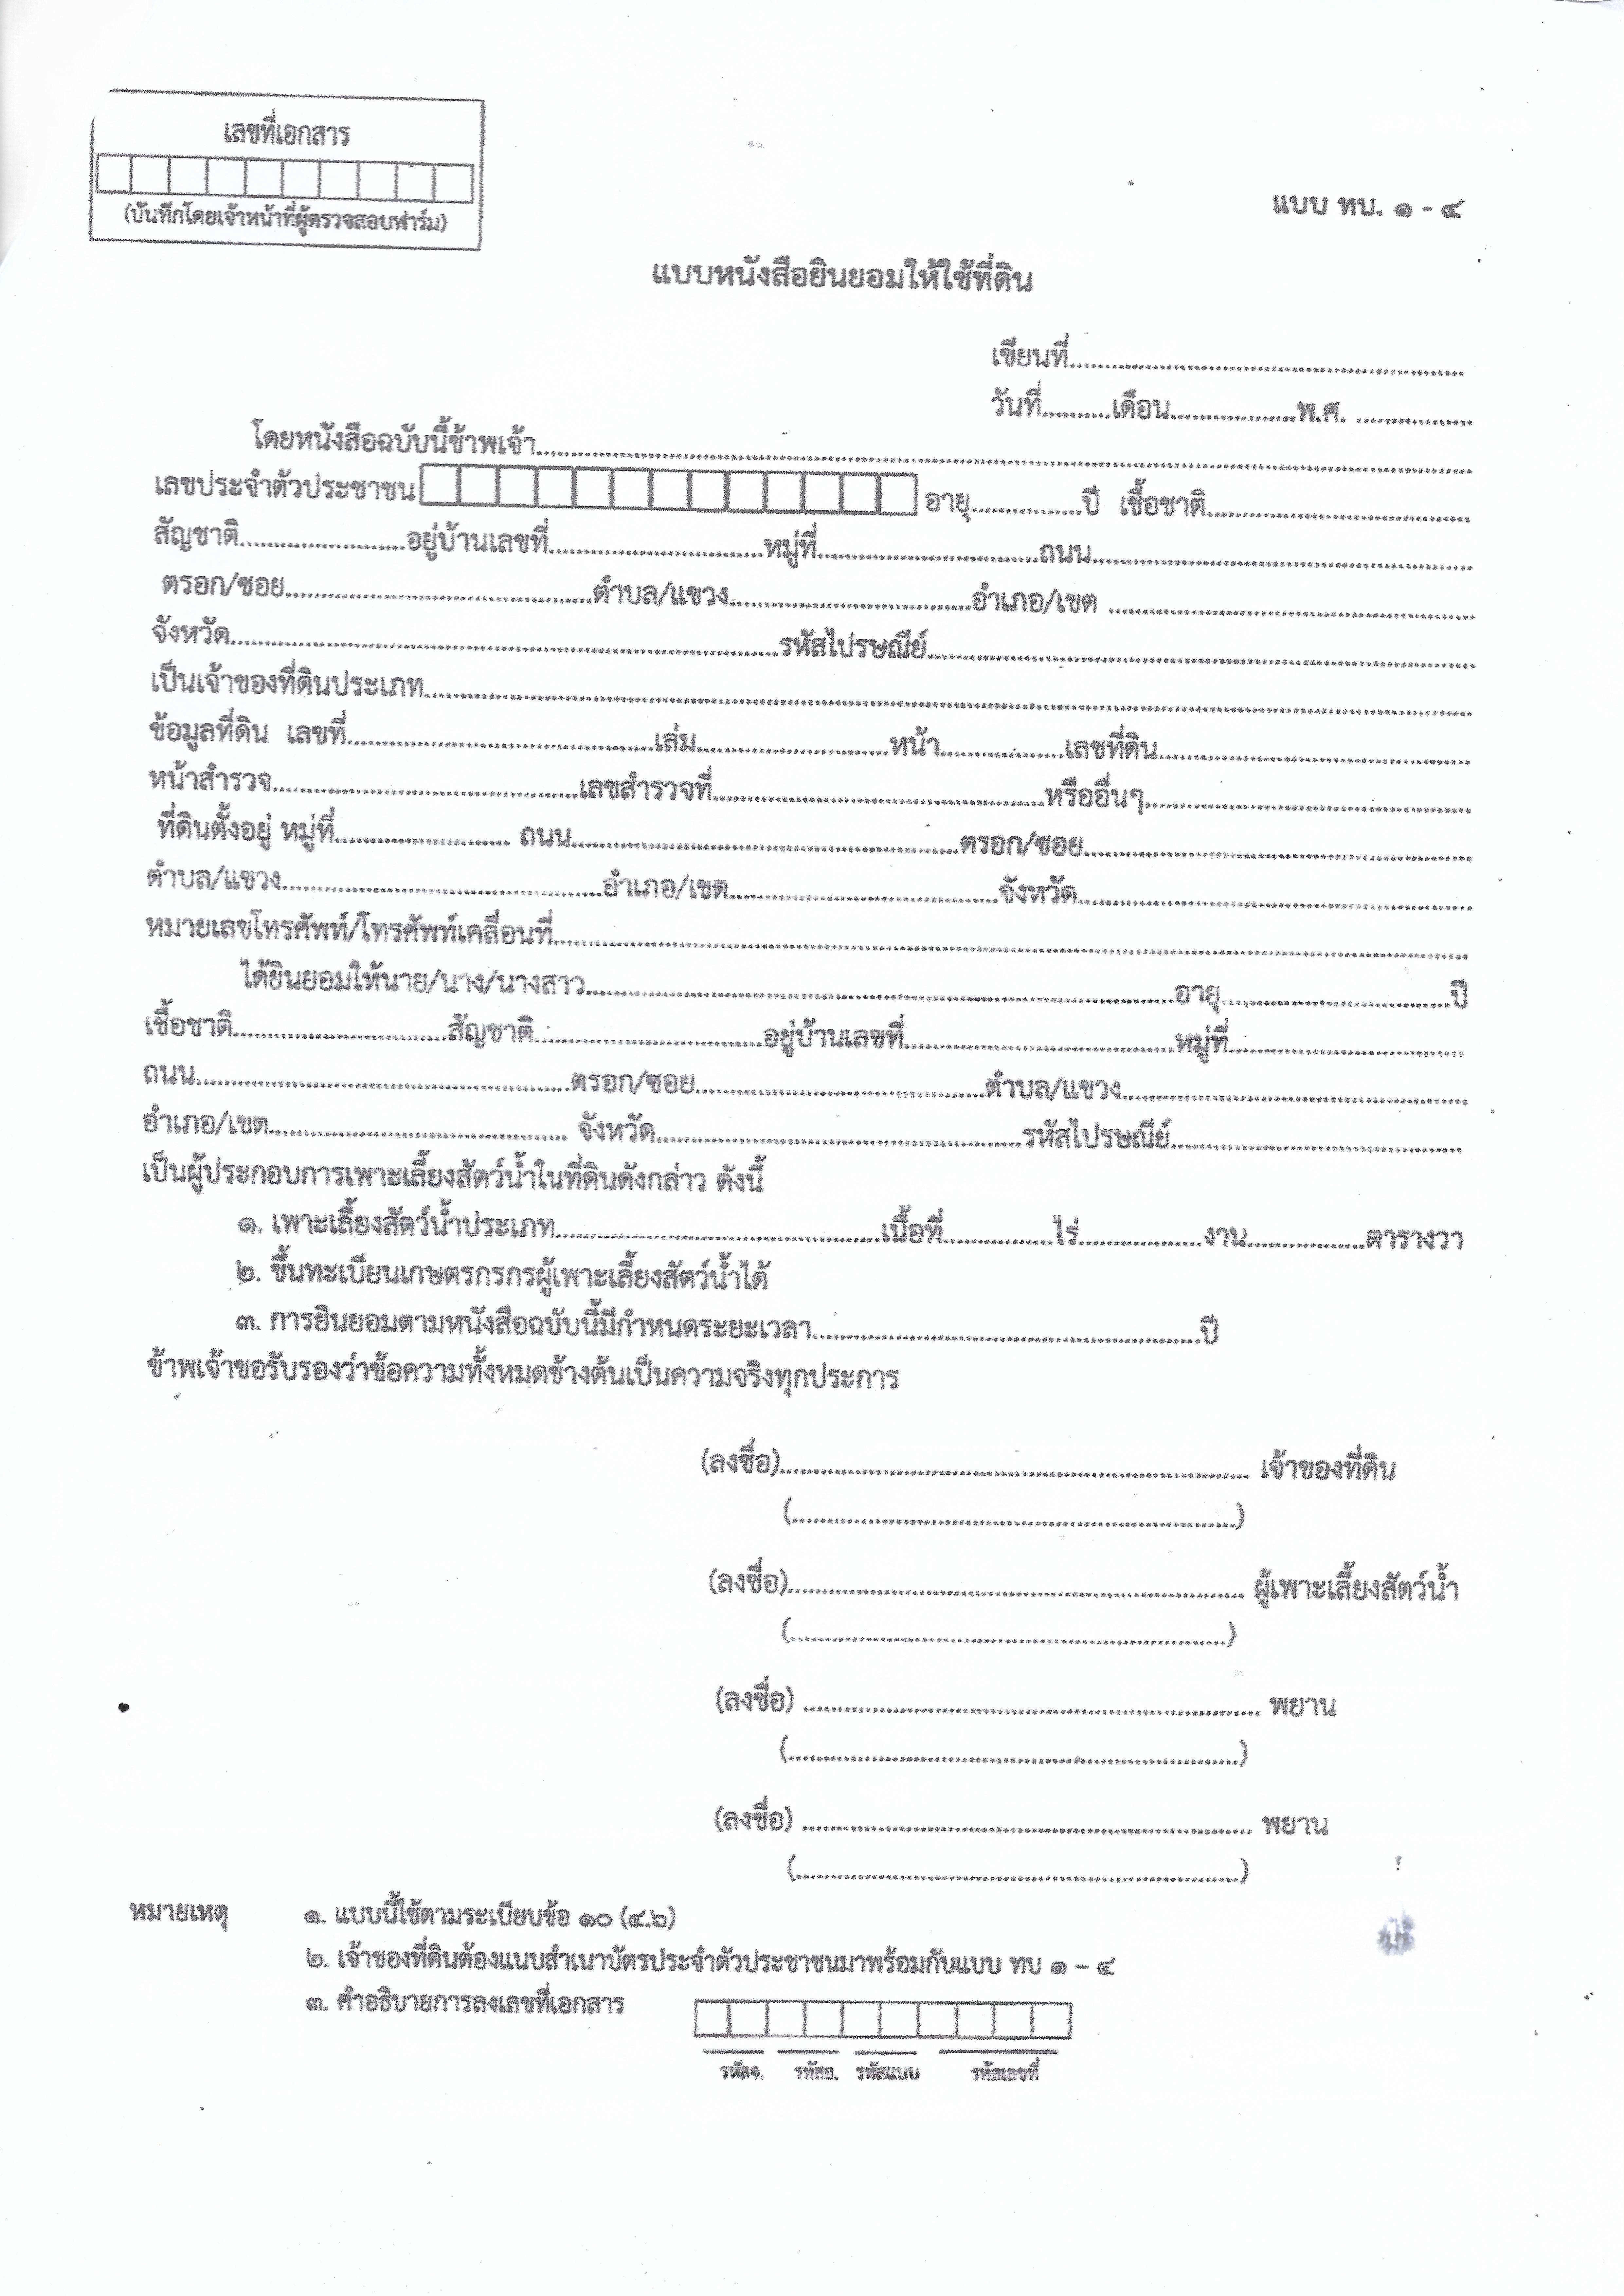 เลขที่เอกสาร
(บันทึกโดยเจ้าหน้าที่ผู้ตรวจสอบฟาร์ม)
แบบ ทบ. ๑ - ๔
แบบหนังสือยินยอมให้ใช้ที่ดิน
เขียนที่....................
วันที่..........เดือน....................พ.ศ. ....................
โดยหนังสือฉบับนี้ข้าพเจ้า....................
เลขประจำตัวประชาชน อายุ....................ปี เชื้อชาติ....................
สัญชาติ....................อยู่บ้านเลขที่....................หมู่ที่....................ถนน....................
ตรอก/ซอย....................ตำบล/แขวง....................อำเภอ/เขต ....................
จังหวัด....................รหัสไปรษณีย์....................
เป็นเจ้าของที่ดินประเภท....................
ข้อมูลที่ดิน เลขที่....................เล่ม....................หน้า....................เลขที่ดิน....................
หน้าสำรวจ....................เลขสำรวจที่....................หรืออื่นๆ....................
ที่ดินตั้งอยู่ หมู่ที่.................... ถนน....................ตรอก/ซอย....................
ตำบล/แขวง....................อำเภอ/เขต....................จังหวัด....................
หมายเลขโทรศัพท์/โทรศัพท์เคลื่อนที่....................
ได้ยินยอมให้นาย/นาง/นางสาว....................อายุ....................ปี
เชื้อชาติ....................สัญชาติ....................อยู่บ้านเลขที่....................หมู่ที่....................
ถนน....................ตรอก/ซอย....................ตำบล/แขวง....................
อำเภอ/เขต.................... จังหวัด....................รหัสไปรษณีย์....................
เป็นผู้ประกอบการเพาะเลี้ยงสัตว์น้ำในที่ดินดังกล่าว ดังนี้
๑. เพาะเลี้ยงสัตว์น้ำประเภท....................เนื้อที่....................ไร่....................งาน....................ตารางวา
๒. ขึ้นทะเบียนเกษตรกรกรผู้เพาะเลี้ยงสัตว์น้ำได้
๓. การยินยอมตามหนังสือฉบับนี้มีกำหนดระยะเวลา....................ปี
ข้าพเจ้าขอรับรองว่าข้อความทั้งหมดข้างต้นเป็นความจริงทุกประการ
(ลงชื่อ).................... เจ้าของที่ดิน
(....................)
(ลงชื่อ).................... ผู้เพาะเลี้ยงสัตว์น้ำ
(....................)
(ลงชื่อ) .................... พยาน
(....................)
(ลงชื่อ) .................... พยาน
(....................)
หมายเหตุ ๑. แบบนี้ใช้ตามระเบียบข้อ ๑๐ (๔.๖)
๒. เจ้าของที่ดินต้องแนบสำเนาบัตรประจำตัวประชาชนมาพร้อมกับแบบ ทบ ๑ – ๔
๓. คำอธิบายการลงเลขที่เอกสาร
รหัสจ. รหัสอ. รหัสแบบ รหัสเลขที่